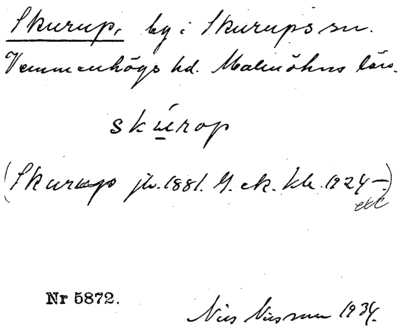 Skurup, by i Skurups sn.
Vemmenhögs hd. Malmöhus län.
skúrop
(Skurup jw. 1881. G. ek. kk. 1924–)
etc
Nr 5872.
Nils Nilsson 1934.